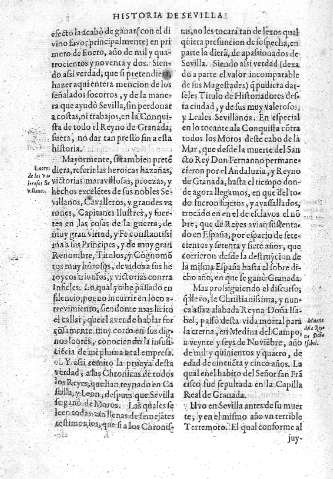 HISTORIA DE SEVILLA.
efecto la acabò de ganar (con el di
vino favor; principalmente) en pri
mero de Enero, año de mil y qua
trocientos y noventa y dos. Sien
do assi verdad, que si pretendiera
hazer aqui entera mencion de los
señalados socorros, y de la mane
ra que ayudò Sevilla, sin perdonar
a costas, ni trabajos, en la Conquis
ta de todo el Reyno de Granada;
fuera, no dar tan presto fin a esta
historia.
Mayormente, si tambien preté
diera, referir las heroicas hazañas,
victorias maravillosas, proezas, y
hechos excelétes de sus nobles Se
villanos, Cavalleros, y grandes va
rones, Capitanes Illustres, y fuer
tes en las cosas de la guerra, de
muy gran virtud, y fè constantissi
ma a los Principes, y de muy gran
Renombre, Titulos, y Cognomé
tos muy honrosos, devidos a sus he
roycos triunfos, y victorias contra
Infieles. En lo qual yo he passado en
silencio, por no incurrir en loco a
trevimiento, siendome mas licito
el callar, que el averde hablar for
çosamente muy corto en sus dig
nos loores, conociendo la insufi
ciécia de mi pluma a tal empresa.
Y assi remito la prueva desta
verdad, a las Chronicas de todos
los Reyes, que han reynado en Ca
stilla, y Leon, despues que Sevilla
se ganò de Moros. Las quales se
leen todas tan llenas de semejátes
testimonios, que si a los Chronis-
Loores de los Va
lerosos Se
villanos.
tas, no les tocara tan de lexos qual
quiera presuncion de sospecha, en
parte la diera, de apassionados de
Sevilla. Siendo assi verdad (dexa
do a parte el valor incomparable
de sus Magestades) q pudiera dar-
seles Titulo de Historiadores des-
ta ciudad, y de sus muy valerosos,
y Leales Sevillanos. En especial
en lo tocante a la Conquista cótra
todos los Moros deste cabo de la
Mar, que desde la muerte del San
cto Rey Don Fernando permane
cieron por el Andaluzia, y Reyno
de Granada, hasta el tiempo don
de agora llegamos, en que del to
do fueron sujetos, y avassallados,
trocado en en el de esclavos el nó
bre, que de Reyes avian sustenta-
do en España, por espacio de sete-
cientos y setenta y siete años, que
corrieron desde la destruycion de
la misma España hasta al sobre di
cho año, en que se ganò Granada.
Mas prosiguiendo el discurso,
q llevo, la Christianissima, y nun
ca assaz alabada Reyna Doña Isa-
bel, passò desta vida mortal para
la eterna en Medina del Campo,
a veynte y seys de Noviébre, año
de mil y quinientos y quatro, de
edad de cincuéta y cinco años. La
qual en el habito del Señor san Frá
cisco fue sepultada en la Capilla
Real de Granada.
Huvo en Sevilla antes de su muer
te, y en el mismo año un terrible
Terremoto. El qual conforme al
Muerte
dla Rey
na Doña
Isabel.
juy-